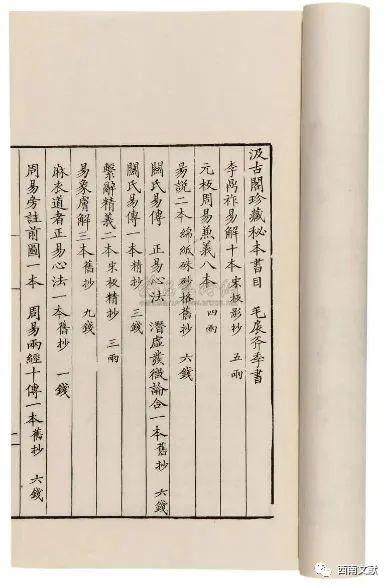 汲古閣珍藏秘本書目　毛扆斧季書
李鼎祚易解十本 宋板影抄　五兩
元板周易兼義八本　四兩
易說二本 綿紙硃砂格舊抄　六錢
關氏易傳　正易心法　潛虛發微論合一本舊抄　六錢
關氏易傳一本精抄　三錢
繫辭精義二本 宋板精抄　三兩
易象膚解三本舊抄　九錢
麻衣道者正易心法一本舊抄　一錢
周易旁註前圖一本　周易兩經十傳一本舊抄　六錢
西南文献